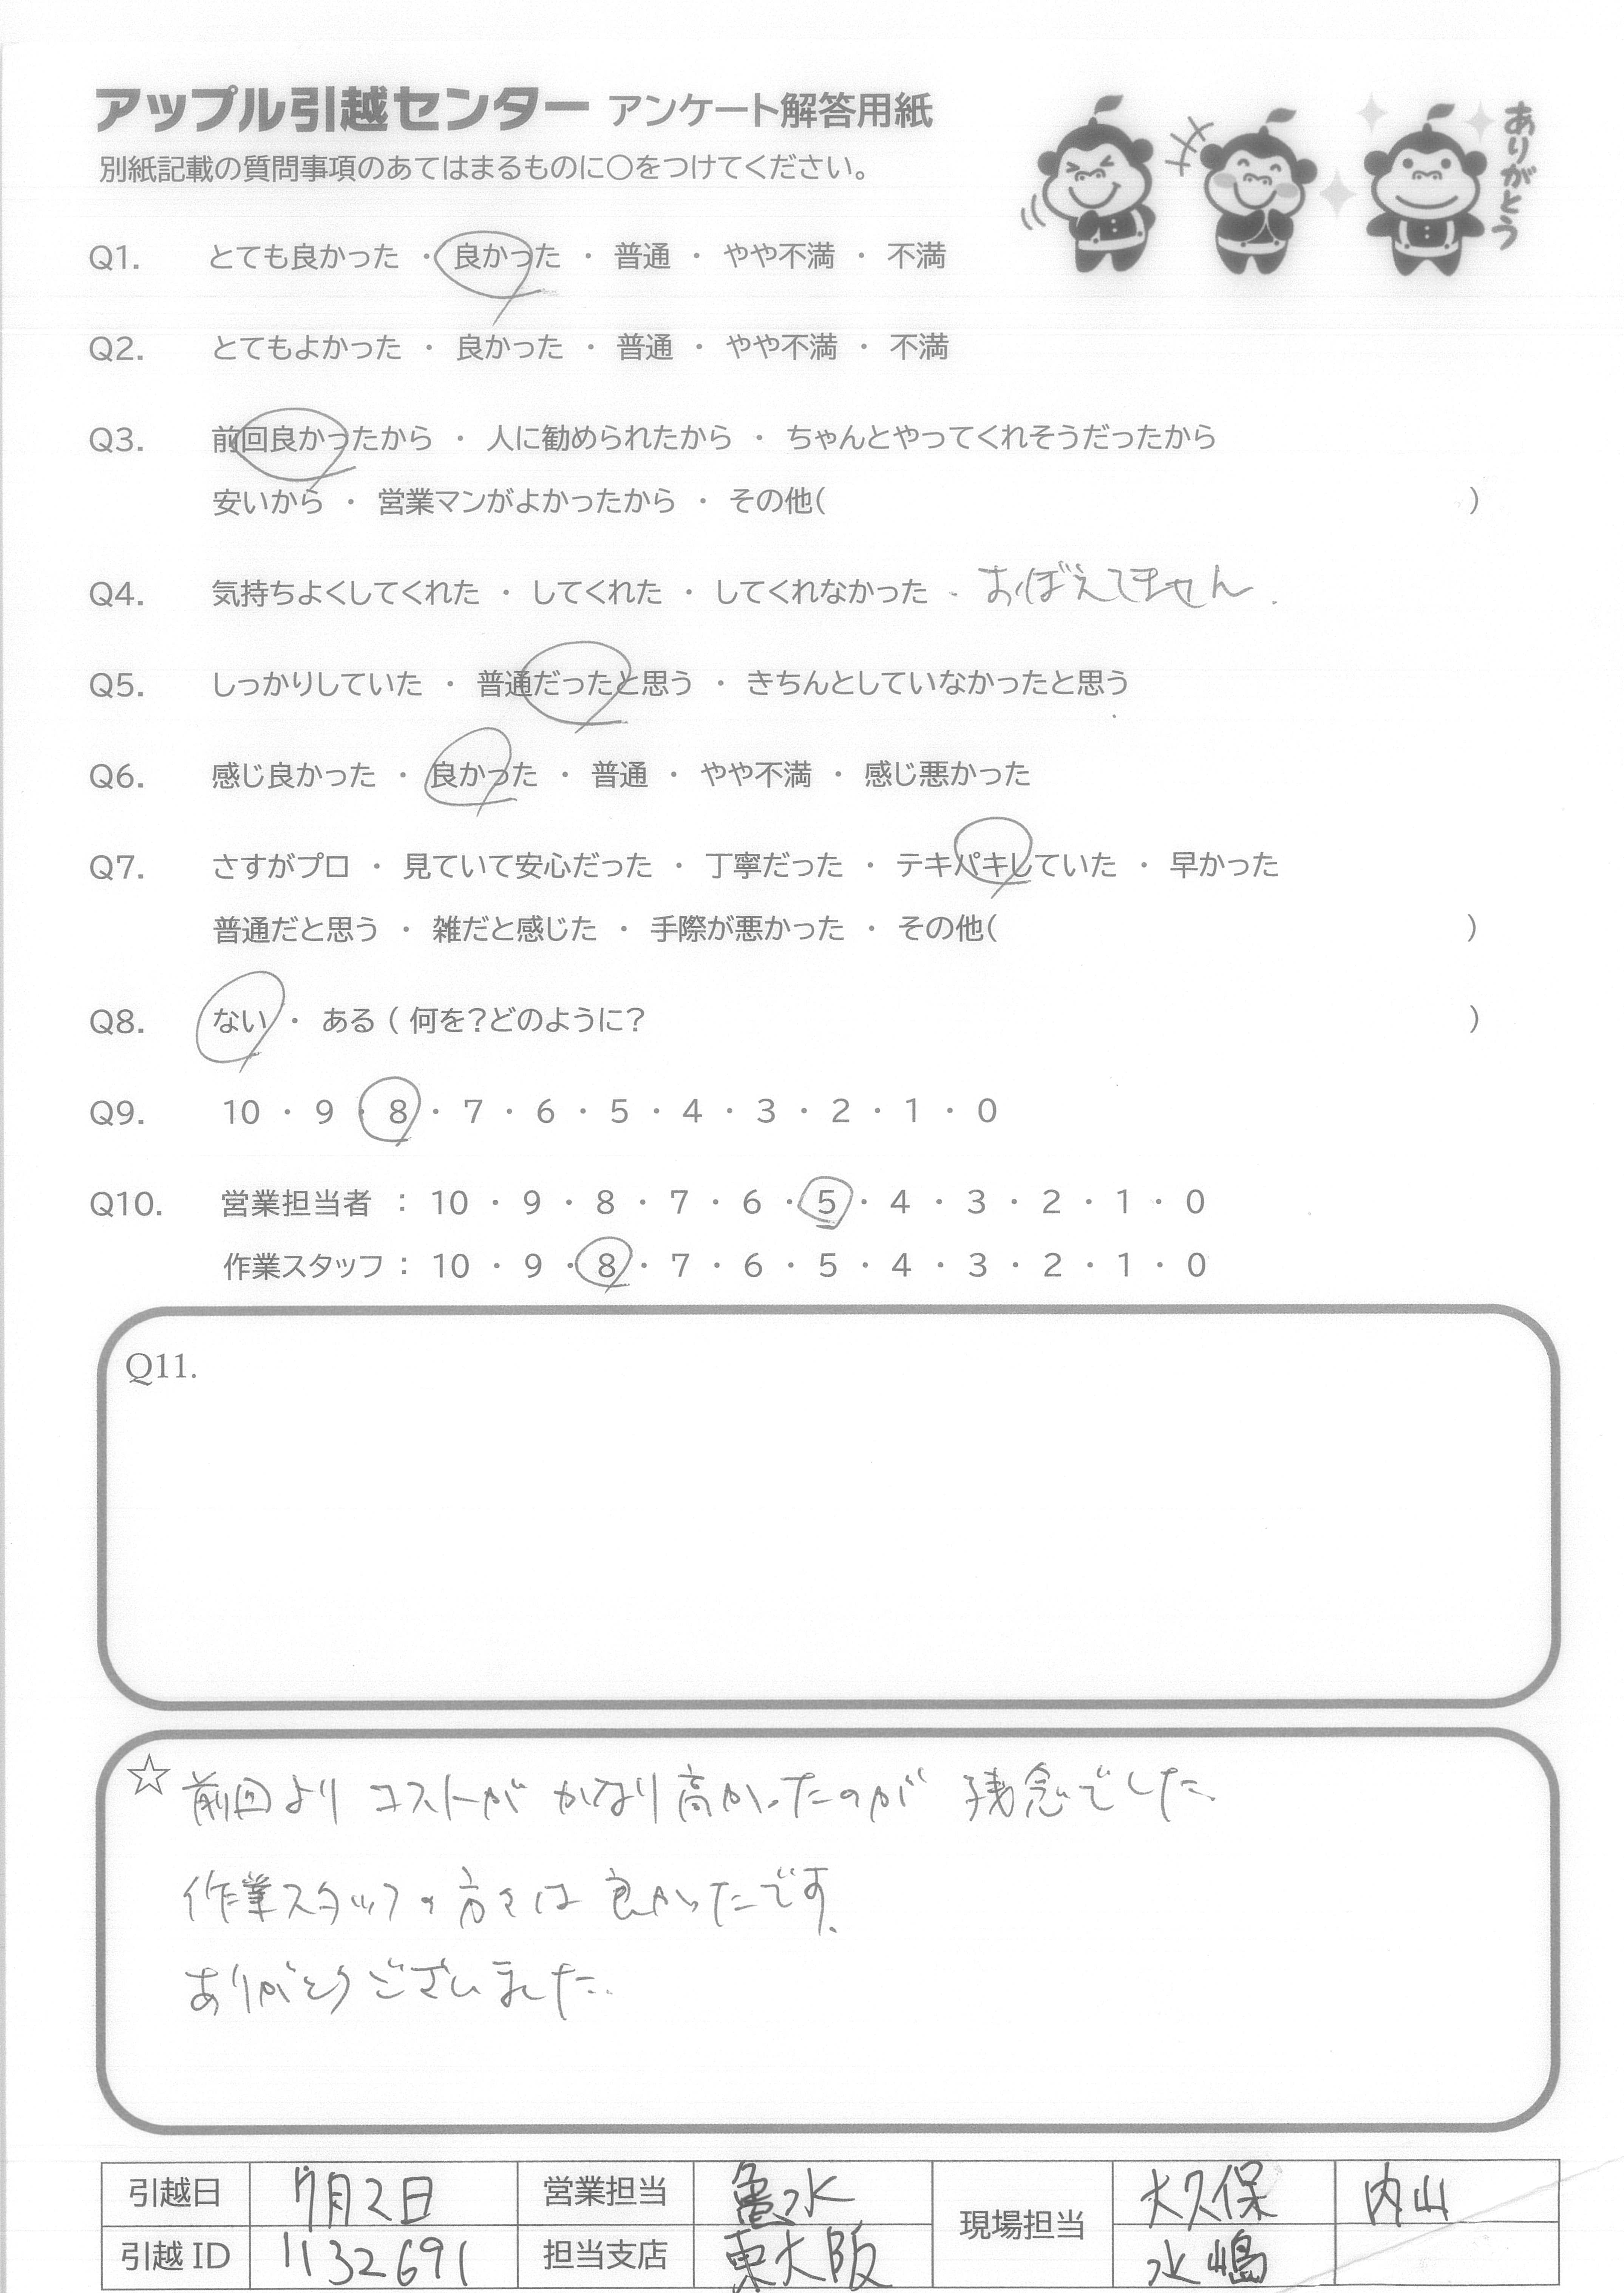 アップル引越センター アンケート解答用紙
別紙記載の質問事項のあてはまるものに〇をつけてください。
ありがとう
Q1. とても良かった ・ 良かった ・ 普通 ・ やや不満 ・ 不満
Q2. とてもよかった ・ 良かった ・ 普通 ・ やや不満 ・ 不満
Q3. 前回良かったから ・ 人に勧められたから ・ ちゃんとやってくれそうだったから
安いから ・ 営業マンがよかったから ・ その他( )
Q4. 気持ちよくしてくれた ・ してくれた ・ してくれなかった ・ おぼえてません.
Q5. しっかりしていた ・ 普通だったと思う ・ きちんとしていなかったと思う
Q6. 感じ良かった ・ 良かった ・ 普通 ・ やや不満 ・ 感じ悪かった
Q7. さすがプロ ・ 見ていて安心だった ・ 丁寧だった ・ テキパキしていた ・ 早かった
普通だと思う ・ 雑だと感じた ・ 手際が悪かった ・ その他( )
Q8. ない ・ ある ( 何を?どのように? )
Q9. 10 ・ 9 ・ 8 ・ 7 ・ 6 ・ 5 ・ 4 ・ 3 ・ 2 ・ 1 ・ 0
Q10. 営業担当者 : 10 ・ 9 ・ 8 ・ 7 ・ 6 ・ 5 ・ 4 ・ 3 ・ 2 ・ 1 ・ 0
作業スタッフ : 10 ・ 9 ・ 8 ・ 7 ・ 6 ・ 5 ・ 4 ・ 3 ・ 2 ・ 1 ・ 0
Q11.
☆ 前回より コストが かなり高かったのが 残念でした.
作業スタッフの方々は 良かったです.
ありがとうございました.
引越日 7月2日 営業担当 亀水 現場担当 大久保 内山
引越 ID 1132691 担当支店 東大阪 水嶋